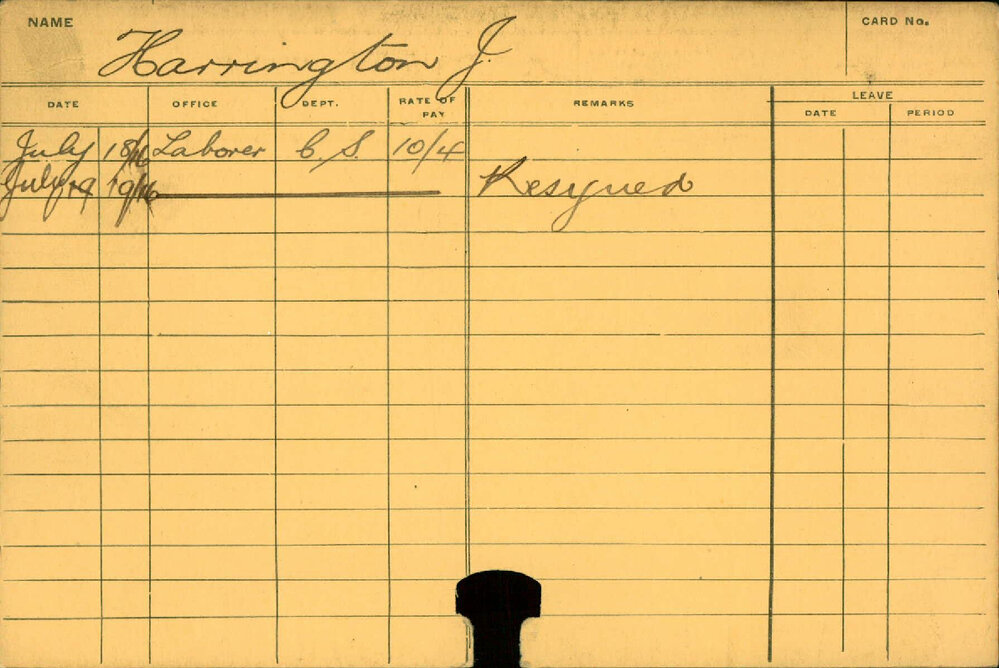 NAME Harrington J. CARD No.
DATE OFFICE DEPT. RATE OF PAY REMARKS LEAVE
DATE PERIOD
July 18/16 Laborer C. S. 10/4
July 19 19/16 Resigned